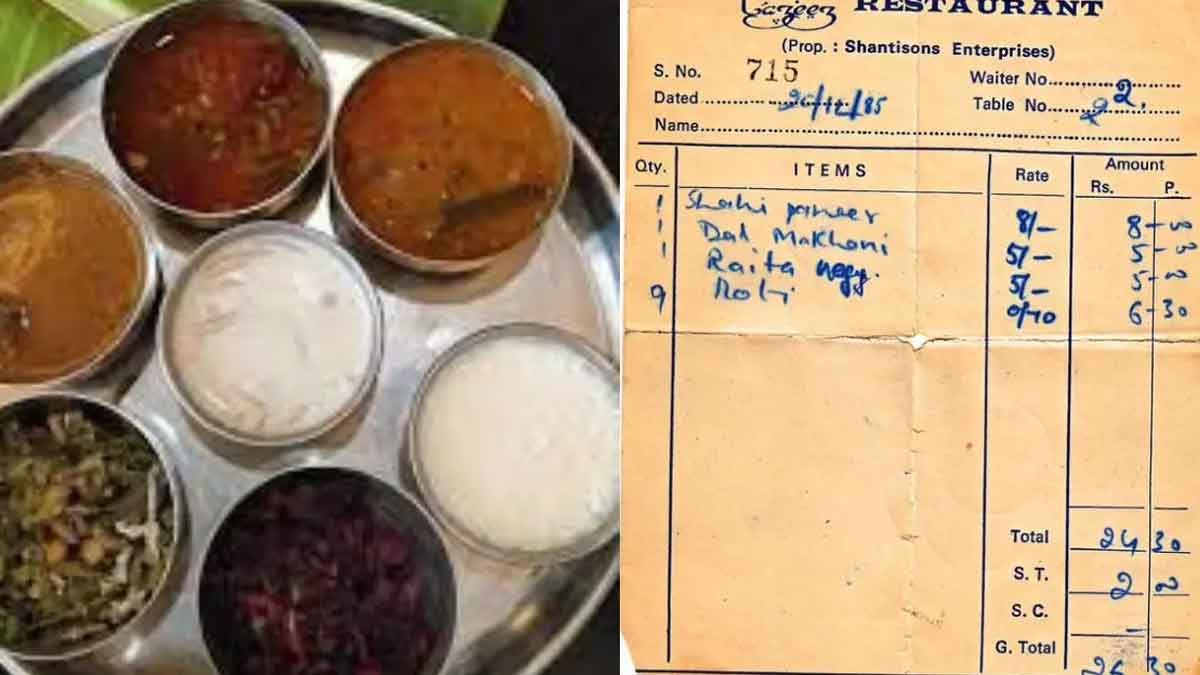 Lazeez RESTAURANT
(Prop. : Shantisons Enterprises)
S. No. 715 Waiter No. 2.
Dated 20/12/85 Table No. 2
Name
Qty. ITEMS Rate Amount
Rs. P.
1 Shahi paneer 8/- 8-00
1 Dal Makhani 5/- 5-00
1 Raita vegy. 5/- 5-00
9 Roti 0/70 6-30
Total 24 30
S. T. 2 00
S. C. -
G. Total 26 30